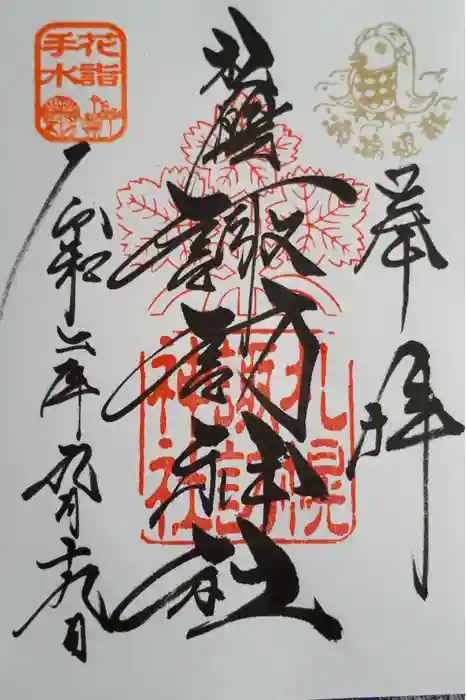 奉拝
札幌
諏訪神社
令和六年九月十九日
札幌
諏訪
神社
花詣
手水